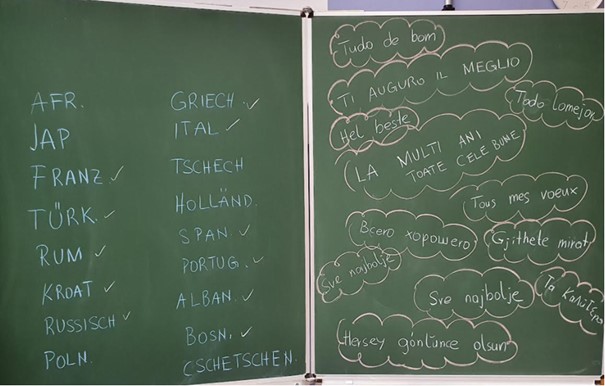 AFR.
JAP
FRANZ. ✓
TÜRK. ✓
RUM ✓
KROAT ✓
RUSSISCH ✓
POLN.
GRIECH. ✓
ITAL ✓
TSCHECH
HOLLÄND.
SPAN. ✓
PORTUG. ✓
ALBAN. ✓
BOSN. ✓
CSCHETSCHEN.
Tudo de bom
TI AUGURO IL MEGLIO
Todo lomejor
Hel beste
LA MULTI ANI
TOATE CELE BUNE
Tous mes voeux
Bcero xopowero
Gjithete mirat
Sve najbolje
Sve najbolje
Τα καλύτερα
Hersey gönlünce olsun